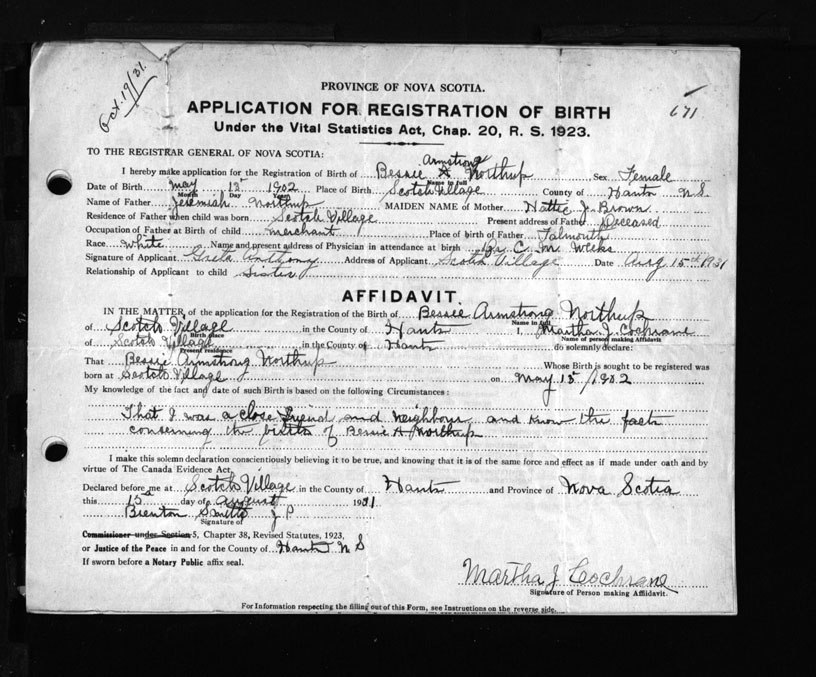 Oct. 19/31.
PROVINCE OF NOVA SCOTIA.
671
APPLICATION FOR REGISTRATION OF BIRTH
Under the Vital Statistics Act, Chap. 20, R. S. 1923.
TO THE REGISTRAR GENERAL OF NOVA SCOTIA:
Armstrong
I hereby make application for the Registration of Birth of Bessie A Northup Sex Female
Name in full
Date of Birth May 15 1902 Place of Birth Scotch Village County of Hants N S
Month Day Year
Name of Father Jeremiah Northup MAIDEN NAME of Mother Hattie J. Brown
Residence of Father when child was born Scotch Village Present address of Father Deceased
Occupation of Father at Birth of child merchant Place of birth of Father Falmouth
Race White Name and present address of Physician in attendance at birth Dr C. M. Weeks
Signature of Applicant Anthony Address of Applicant Scotch Village Date Aug 15th 1931
Relationship of Applicant to child Sister
AFFIDAVIT.
IN THE MATTER of the application of the Registration of the Birth of Bessie Armstrong Northup
Name in full
of Scotch Village in the County of Hants I, Martha J. Cochrane
Birth place Name of person making Affidavit
of Scotch Village in the County of Hants do solemnly declare:
Present residence
That Bessie Armstrong Northup Whose Birth is sought to be registered was
born at Scotch Village on May 15 / 1902
My knowledge of the fact and date of such Birth is based on the following Circumstances:
That I was a close friend and neighbour and know the facts
concerning the birth of Bessie A Northup
I make this solemn declaration conscientiously believing it to be true, and knowing that it is of the same force and effect as if made under oath and by
virtue of The Canada Evidence Act.
Declared before me at Scotch Village in the County of Hants and Province of Nova Scotia
this 15 day of August 1931
Brenton Smith J P
Signature of
Commissioner under Section 5, Chapter 38, Revised Statutes, 1923,
or Justice of the Peace in and for the County of Hants N S
If sworn before a Notary Public affix seal.
Martha J Cochrane
Signature of Person making Affidavit.
For Information respecting the filling out of this Form, see Instructions on the reverse side.